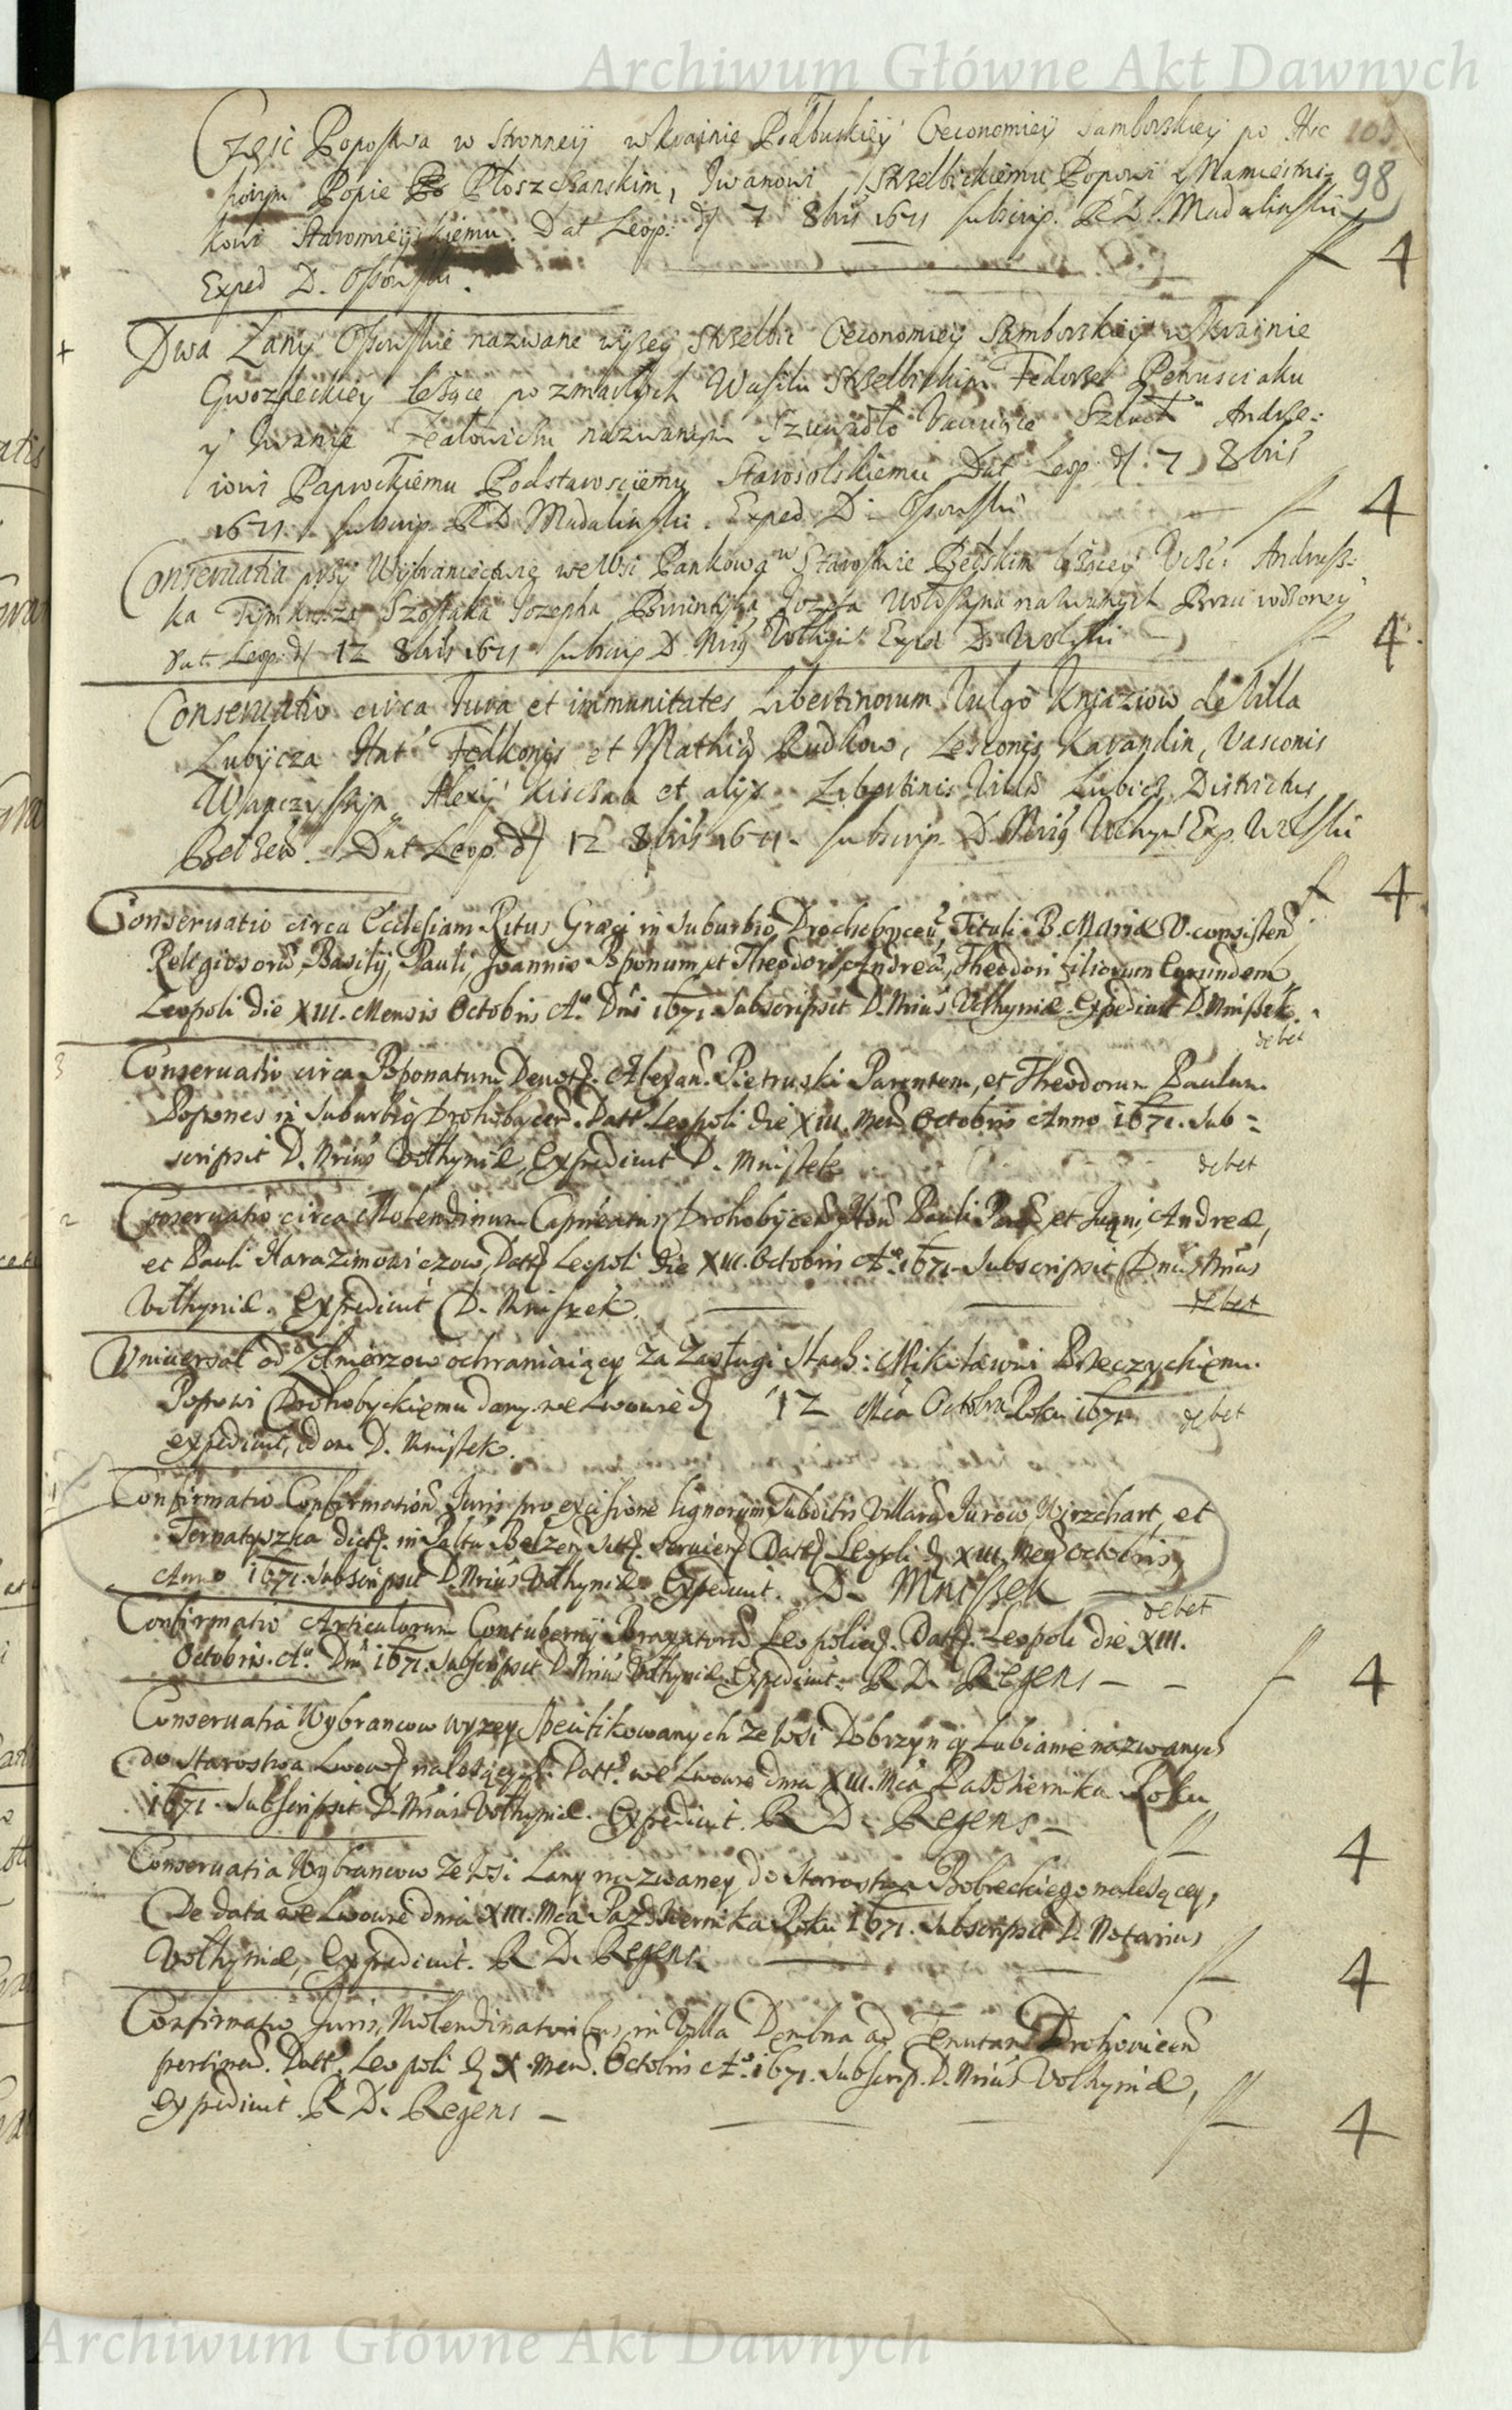 Archiwum Główne Akt Dawnych
103
98
Część Popostwa w Stronney w krainie Podbuskiey Oeconomiey Samborskiey po Hre
horym Popie Płoszczanskim, Iwanowi Strzelbickiemu Popowi y Namiestni-
kowi Staromieyskiemu. Dat Leop: d. 7 8bris 1671 subscrip. R D. Madalinski
Exped D. Ossowski. f 4
+ Dwa Łany Ossowskie nazwane wyszey Strzelbic Oeconomiey Samborskiey w krainie
Gwozdeckiey leżące po zmarłych Wasilu Strzelbickim Fedorze Petrusciaku
y Iwanie nazwanym Andrze:
iowi Paprockiemu Podstarosciemu Starosolskiemu Dat Leop. d. 7 8bris
1671. subscrip. R D Madalinski. Exped D. Ossowski f 4
Conseruatia przy Wybraniectwie we Wsi Pankowa w Starostwie Bełskim leżącey
ka Jozepha nazwanych
Dat. Leop. d. 12 8bris 1671 subscrip D. Nrius Volhyn: Exped D. Wolski f 4
Conseruatio circa Iura et immunitates Libertinorum Vulgo Kniaziow de Villa
Lubycza Hnat Fedkonis et Mathiae Rudkow, Lesconis Karandin, Vasconis
Alexij et alijs Libertinis Villae Lubicz Districtus
Belzen. Dat Leop. d. 12 8bris 1671. subscrip. D. Nrius Volhyn. Exp. Wolski
f 4
Conseruatio circa Ecclesiam Ritus Graeci in Suburbio Drohobycen, Tituli B. Mariae V. consisten
Religiosorum Basilij, Pauli, Joannis Poponum et Theodori, Andreae, Theodori filiorum Eorundem
Leopoli die XIII. Mensis Octobris Ao. Dni 1671. Subscripsit D. Nrius Volhyniae. Expediuit D. Mnissek.
debet
3 Conseruatio circa Poponatum Deuot. Alexan. Pietruski Parentem, et Theodorum Paulum
Popones in Suburbio Drohobycen. Datt Leopoli die XIII. Men Octobris Anno 1671. Sub=
scripsit D. Nrius Volhyniae, Expediuit D. Mnissek debet
2 Conseruatio circa Molendinum Drohobycen Pauli et Andreae,
et Pauli Harazimowiczow, Datt Leopoli die XIII. Octobris Ao. 1671. Subscripsit Dnus Nrius
Volhyniae. Expediuit D. Mniszek. debet
Vniuersał od Zołnierzow ochraniaiący za Zasługi Stach: Mikołaiowi Brzeczyckiemu
Popowi Drohobyckiemu dany we Lwowie d. 12 Mca Octobra Roku 1671 debet
expediuit, idem D. Mnissek.
1 Confirmatio Confirmation. Iuris pro excisione lignorum Subditis Villarum Iurow, Wirzchart, et
Ternatyszka dict. in Saltu Belzen sitt. seruien. Datt Leopoli d. XIII. Men Octobris
Anno 1671. Subscripsit D. Nrius Volhyniae Expediuit. D. Mnissek
debet
Confirmatio Articulorum Contubernij Leopolien. Datt. Leopoli die XIII.
Octobris. Ao. Dni 1671. Subscripsit D. Nrius Volhyniae Expediuit. R D. Regens f 4
Conseruatia Wybrancow wyzey specifikowanych ze Wsi Dobrzyn y Lubianie nazwanych
do Starostwa Lwow należących. Datt. we Lwowie dnia XIII. Mca Pazdziernika Roku
1671. Subscripsit D. Nrius Volhyniae. Expediuit. R. D. Regens f 4
Conseruatia Wybrancow ze Wsi Lany nazwaney do Starostwa Bobreckiego należącey,
De data we Lwowie dnia XIII. Mca Pazdziernika Roku 1671. Subscripsit D. Notarius
Volhyniae, Expediuit. R D. Regens. f 4
Confirmatio Iuris Molendinatoribus in Villa Dembna ad Tenutam Drohouicen
pertinen. Datt. Leopoli d. X. Men. Octobris Ao. 1671. Subscrip. D. Nrius Volhyniae,
Expediuit R D. Regens f 4
Archiwum Główne Akt Dawnych